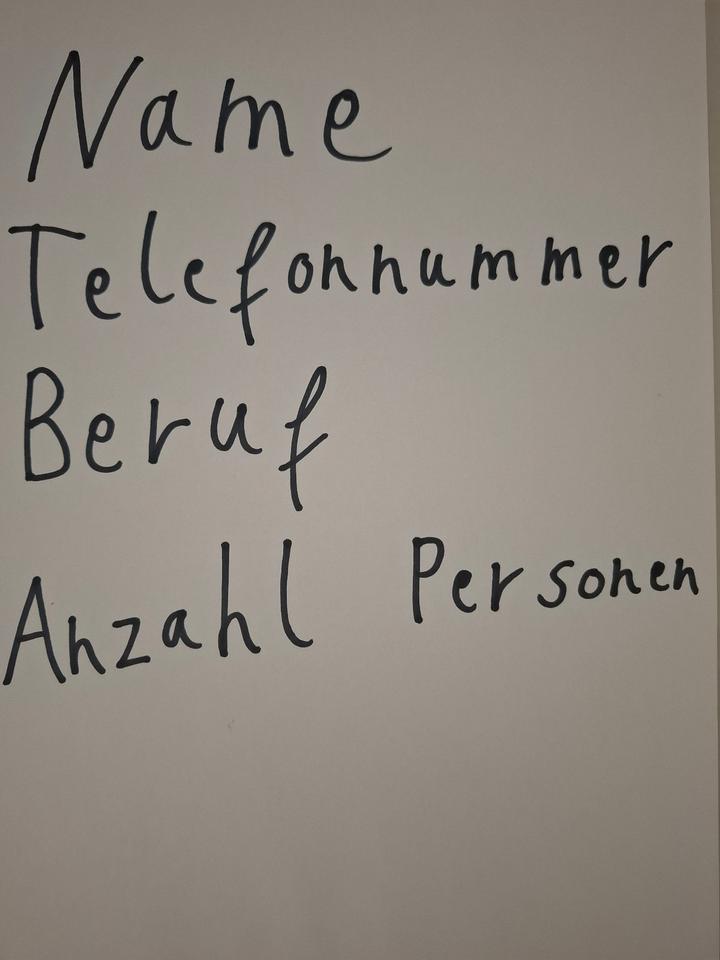 Name
Telefonnummer
Beruf
Anzahl Personen